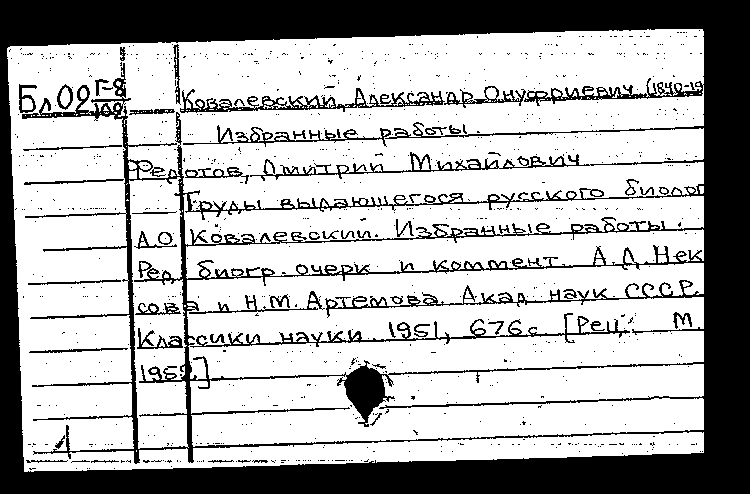 Бл02 Г-8/109 Ковалевский, Александр Онуфриевич (1840-19
Избранные работы.
Федотов, Дмитрий Михайлович
Труды выдающегося русского биолог
А.О. Ковалевский. Избранные работы.
Ред., биогр. очерк и коммент. А.Д. Нек
сова и Н.М. Артемова. Акад. наук СССР.
Классики науки. 1951, 676с. [Рец.: М.
1952].
1